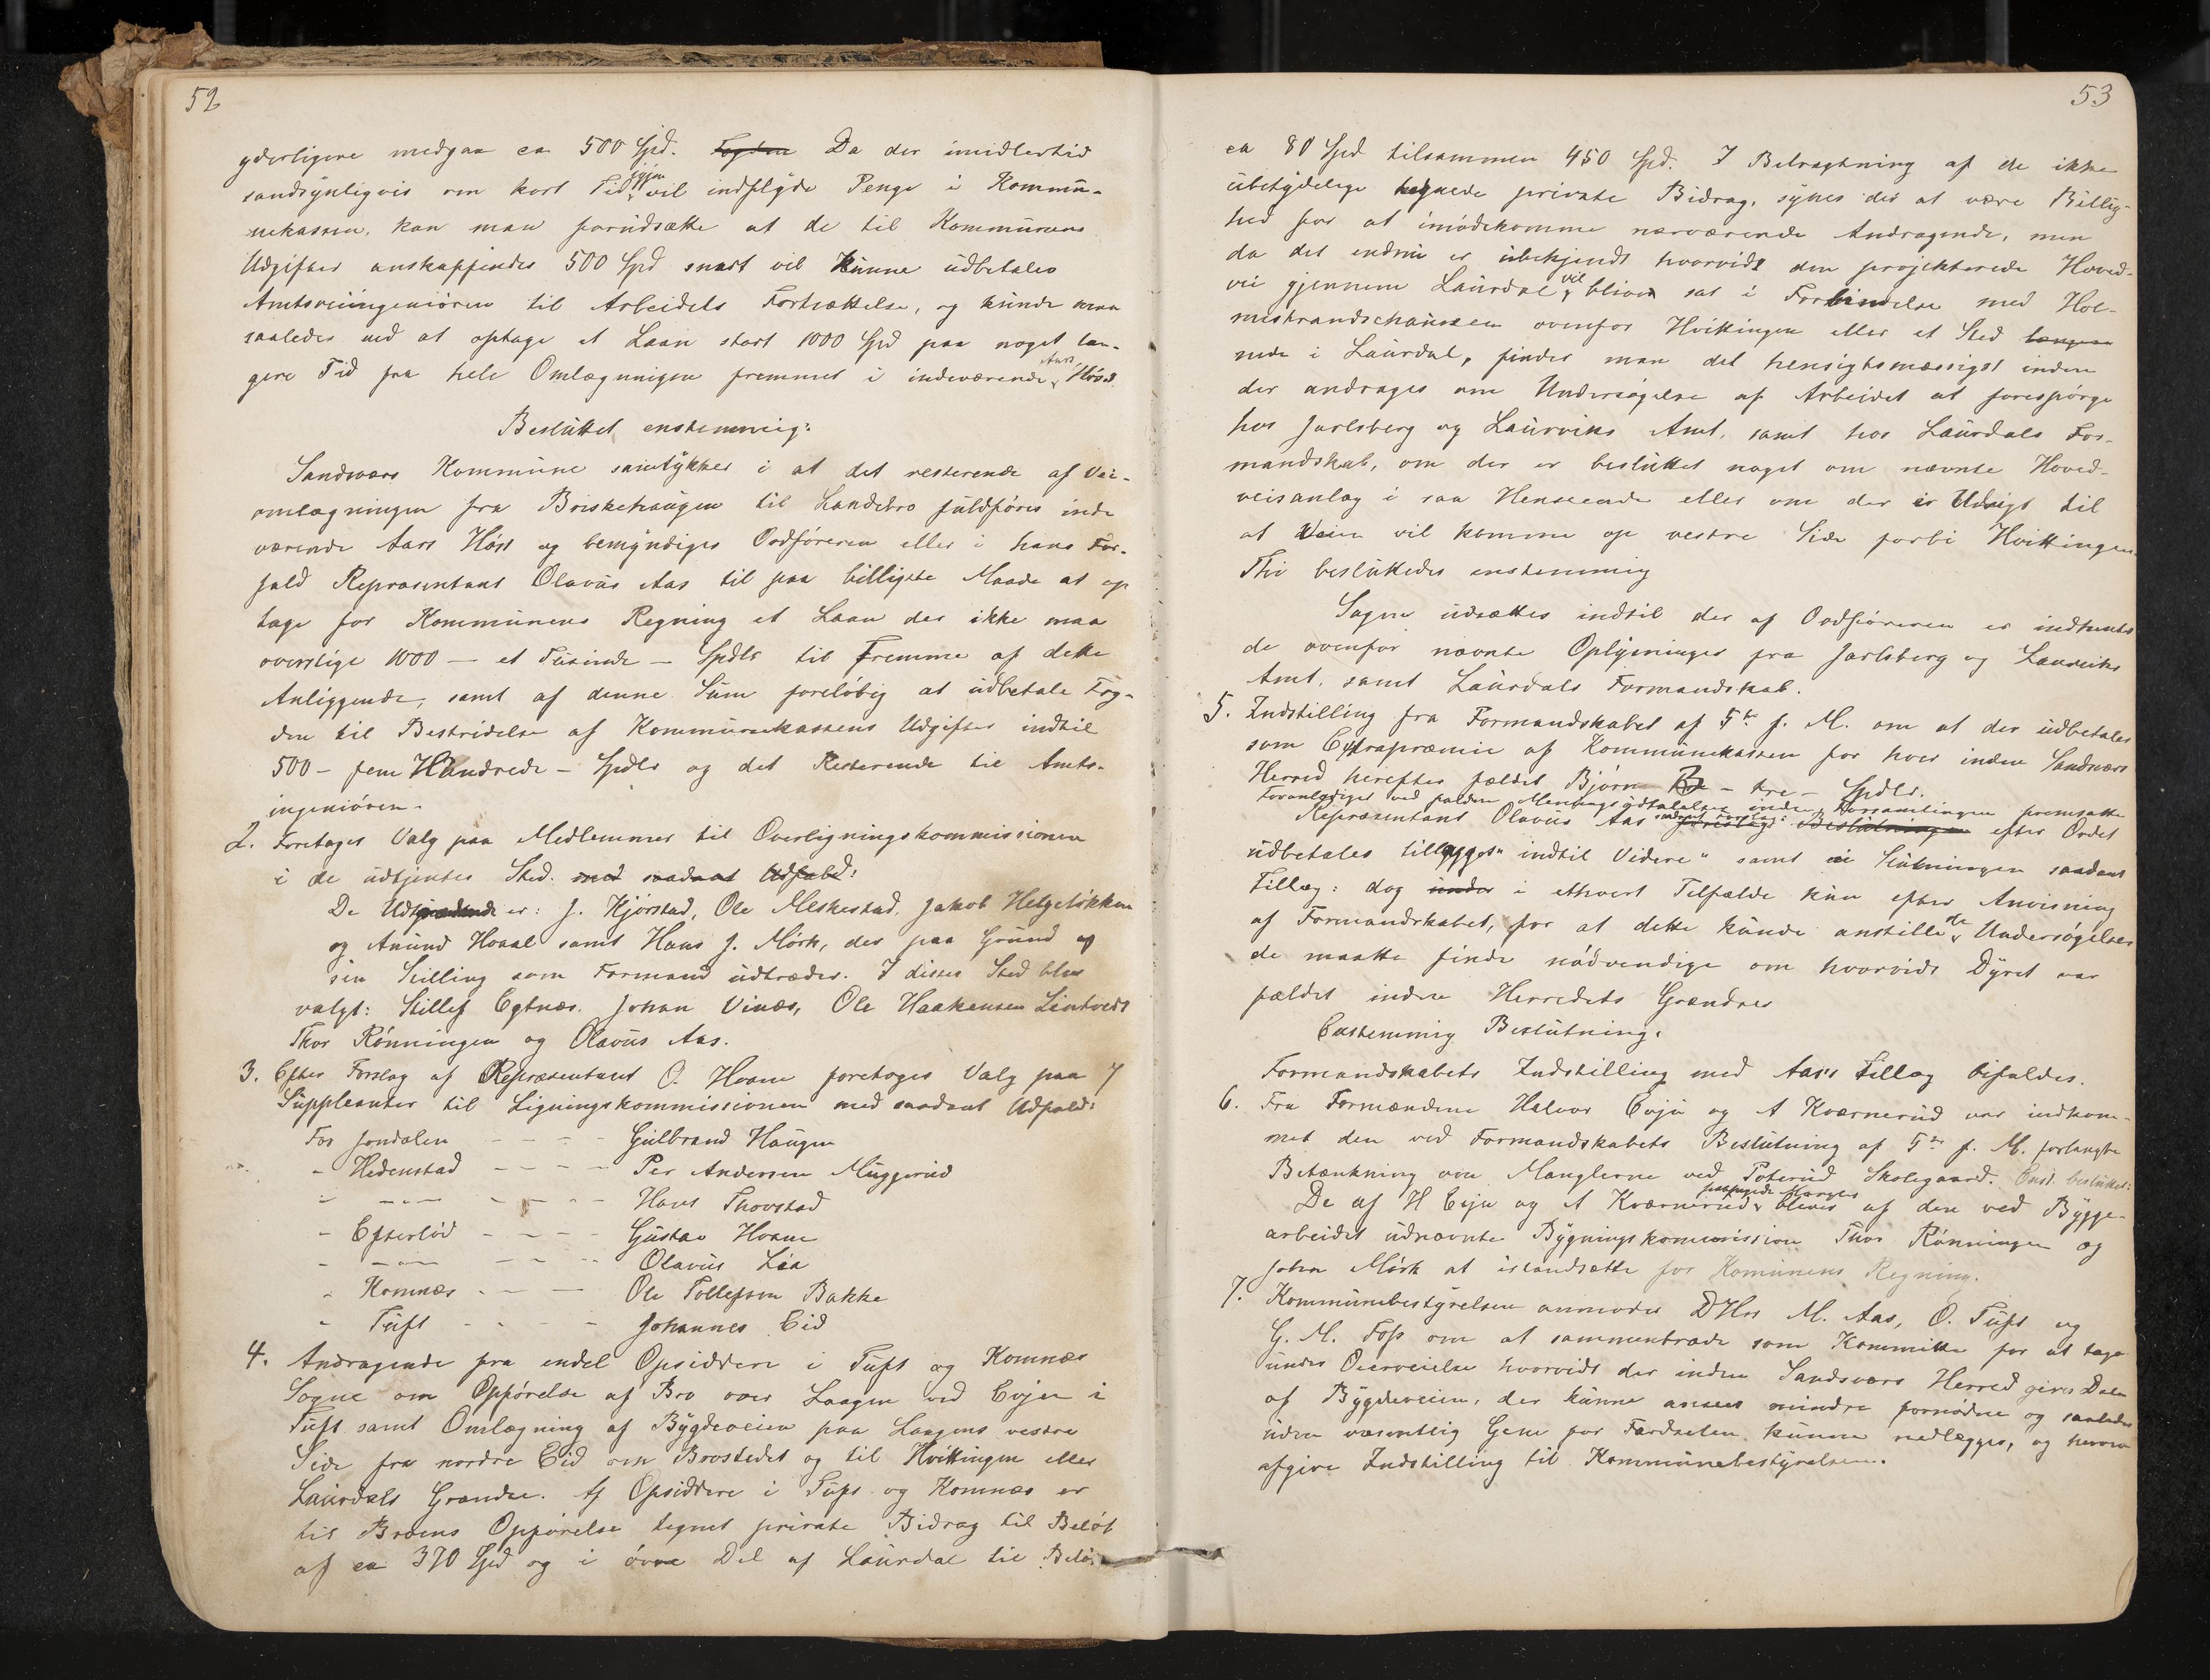 52
yderligere medgaa ca 500 Spd. Fogden Da der imidlertid
sandsynligvis om kort Tid igjen vil indflyde Penge i Kommu-
nekassen, kan man forudsætte at de til Kommunens
Udgifter anskaffendes 500 Spd snart vil kunne udbetales
Amtsveiingeniören til Arbeidets Fortsættelse, og kunde man
saaledes ved at optage et Laan stort 1000 Spd paa noget læn-
gere Tid faa hele Omlægningen fremmet i indeværende Aars Høst.
Besluttet enstemmig:
Sandsværs Kommune samtykker i at det resterende af Vei-
omlægningen fra Briskehaugen til Landebro fuldføres inde
værende Aars Høst og bemyndiges Ordføreren eller i hans For-
fald Repræsentant Olavus Aas til paa billigste Maade at op
tage for Kommunens Regning et Laan der ikke maa
overstige 1000 — et Tusinde — Spdlr til Fremme af dette
Anliggende, samt af denne Sum foreløbig at udbetale Fog-
den til Bestridelse af Kommunekassens Udgifter indtil
500 - fem Hundrede - Spdlr og det Resterende til Amts-
ingeniören.
2. Foretages Valg paa Medlemmer til Overligningskommissionen
i de udtjentes Sted. med saadant Udfald:
De Udtrædende er: J. Hjørstad, Ole Meskestad, Jakob Helgeløkken
og Amund Hoaal samt Hans J. Mörk, der paa Grund af
sin Stilling som Formand udtræder. I disses Sted blev
valgt: Stillef Egtnæs. Johan Vinæs, Ole Haakensen Lintvedt
Thor Rönningen og Olavus Aas.
3. Efter Forslag af Repræsentant O. Hvam foretages Valg paa 7
Suppleanter til Ligningskommissionen med saadant Udfald:
For Jondalen - - - - Gulbrand Haugen
" Hedenstad - - - - Per Andersen Muggerud
" —"— - - - - Hans Thorstad
" Efteløt - - - - Gustav Hvam
" —"— - - - - Olavus Lia
" Komnæs - - - Ole Tollefsen Bakke
" Tuft - - - - Johannes Eid
4. Andragende fra endel Opsiddere i Tuft og Komnæs
Sogne om Opførelse af Bro over Laagen ved Evjen i
Tuft samt Omlægning af Bygdeveien paa Laagens vestre
Side fra nordre Eid om Brostedet og til Hvittingen eller
Laurdals Grændse. Af Opsiddere i Tuft og Komnæs er
til Broens Opförelse tegnet private Bidrag til Beløb
af ca 370 Spd og i övre Del af Laurdal til Beløb
53
ca 80 Spd tilsammen 450 Spd. I Betragtning af de ikke
ubetydelige tegnede private Bidrag, synes der at være Billig-
hed for at imödekomme nærværende Andragende, men
da det endnu er ubekjendt hvorvidt den projekterede Hoved-
vei gjennem Laurdal vil blive sat i Forbindelse med Hol-
mestrandschauseen ovenfor Hvittingen eller et Sted længere
nede i Laurdal, finder man det hensigtsmæssigst inden
der andrages om Undersøgelse af Arbeidet at forespörge
hos Jarlsberg og Laurviks Amt, samt hos Laurdals For-
mandskab, om der er besluttet noget om nævnte Hoved-
veisanlæg i saa Henseende eller om der er Udsigt til
at Veien vil komme op vestre Side forbi Hvittingen.
Thi besluttedes enstemmig
Sagen udsættes indtil der af Ordføreren er indhentet
de ovenfor nævnte Oplysninger fra Jarlsberg og Laurviks
Amt, samt Laurdals Formandskab.
5. Indstilling fra Formandskabet af 5te f. M. om at der udbetales
som Extrapræmie af Kommunekassen for hver inden Sandsværs
Herred herefter fældet Björn - tre - Spdlr.
Foranlediget ved faldne Meningsudtalelser inden Forsamlingen fremsatte
Repræsentant Olavus Aas saadant Forslag: foreslaaet Beslutningen efter Ordet
udbetales tillægges "indtil Videre" samt i Slutningen saadant
Tillæg: dog under i ethvert Tilfælde kun efter Anvisning
af Formandskabet, for at dette kunde anstille de Undersögelser
de maatte finde nödvendige om hvorvidt Dyret var
fældet inden Herredets Grændser
Enstemmig Beslutning:
Formandskabets Indstilling med Aas's Tillæg bifaldes.
6. Fra Formændene Halvor Evju og A Kværnerud var indkom-
met den ved Formandskabets Beslutning af 5te f. M. forlangte
Betænkning om Manglerne ved Poterud Skolegaard. Enst. besluttet:
De af H Evju og A Kværnerud paapegede Mangler blives af den ved Bygge-
arbeidet udnævnte Bygningskommission Thor Rönningen og
Johan Mörk at istandsætte for Komunens Regning.
7. Kommunebestyrelsen anmoder DHrr M. Aas, O. Tuft og
G. M. Foss om at sammentræde som Kommitte for at tage
under Overveielse hvorvidt der inden Sandsværs Herred gives Dele
af Bygdeveien, der kunne ansees mindre fornödne og saaledes
uden væsentlig Gene for Færdselen kunne nedlægges, og herom
afgive Indstilling til Kommunebestyrelsen.